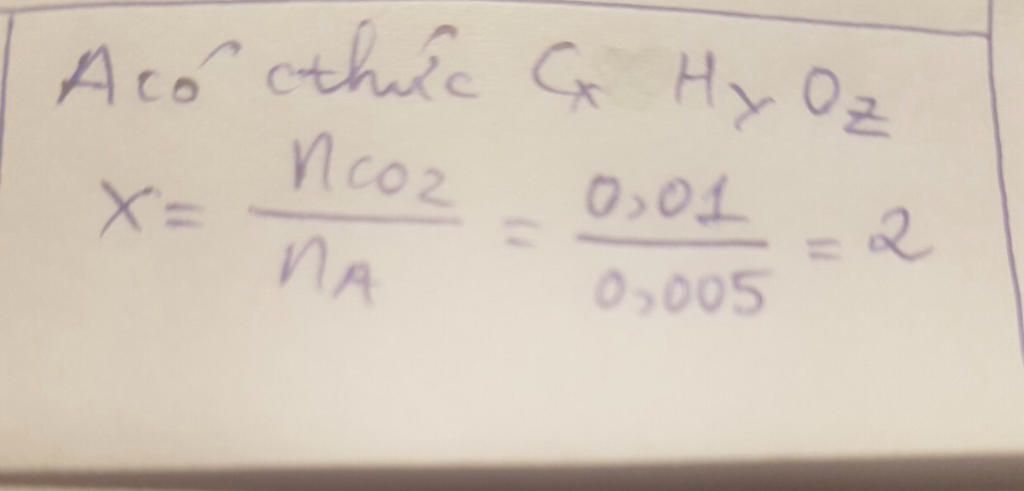 A có cthức CxHyOz
x = nCO2 / nA = 0,01 / 0,005 = 2